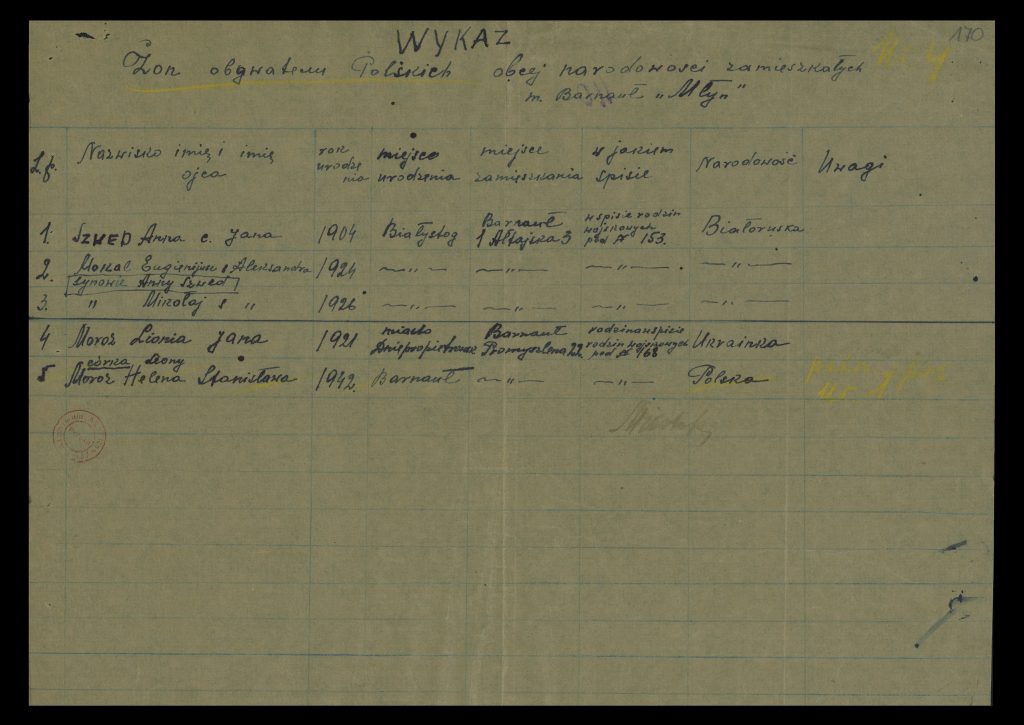 170
WYKAZ
Żon obywateli Polskich obcej narodowości zamieszkałych
m. Barnauł „Młyn”
L.p. Nazwisko imię i imię ojca rok urodzenia miejsce urodzenia miejsce zamięszkania w jakiem spisie Narodowość Uwagi
1. SZWED Anna c. Jana 1904 Białystog Barnauł 1 Ałtajska 3 w spisie rodzin wojskowych pod № 153. Białoruska
2. Mokal Eugienijusz s Aleksandra 1924 —„— —„— —„— —„—
synowie Anny Szwed
3. „ Mikołaj s „ 1926 —„— —„— —„— —„—
4 Moroz Lionia Jana 1921 miasto Barnauł rodzina w spisie rodzin wojskowych pod № 168 Ukrainka
córka Leony
5 Moroz Helena Stanisława 1942. Barnauł —„— —„— Polska